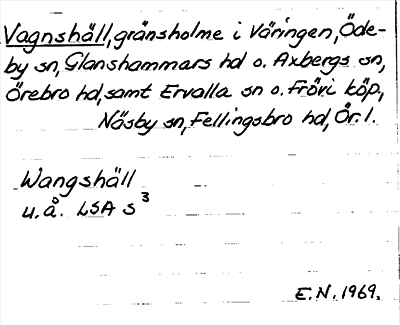 Vagnshäll, gränsholme i Väringen, Öde-
by sn, Glanshammars hd o. Axbergs sn,
Örebro hd, samt Ervalla sn o. Frövi köp,
Näsby sn, Fellingsbro hd, Ör. l.
Wangshäll
u.å. LSA S³
E.N. 1969.